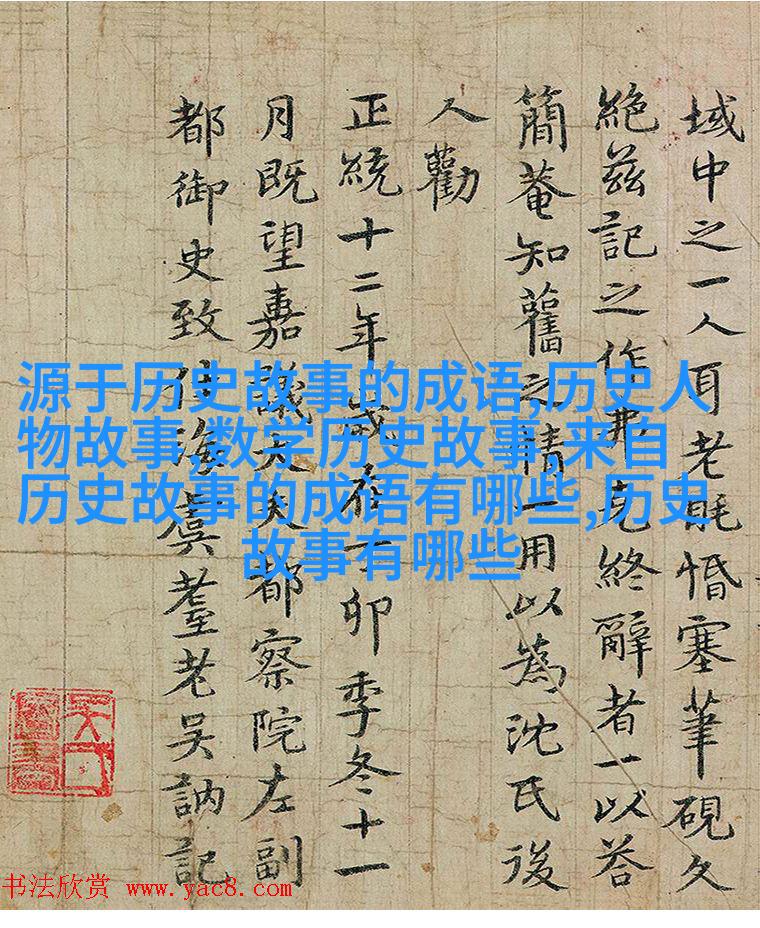 域中之一人耳老眊惛塞筆硯久
絕茲記之作弗克終辭者一以荅
簡菴知舊之情一用以為沈氏後
人勸
正統十二年歲在丁卯季冬十一
月既望嘉議大夫都察院左副
都御史致仕海虞耋老吳訥記
源于历史故事的成语,历史人
物故事,数学历史故事,来自
历史故事的成语有哪些,历史
故事有哪些
书法欣赏 www.yac8.com